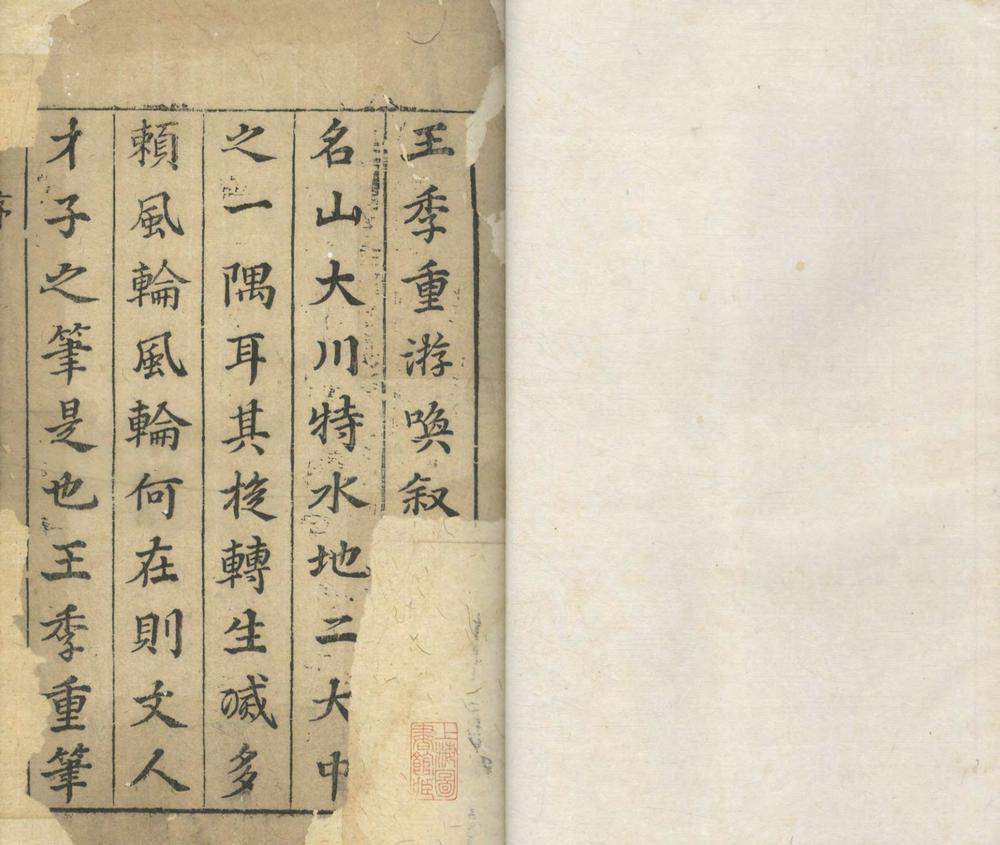 王季重游喚叙
名山大川特水地二大中
之一隅耳其梭轉生滅多
頼風輪風輪何在則文人
才子之筆是也王季重筆
序
上海圖
書館藏